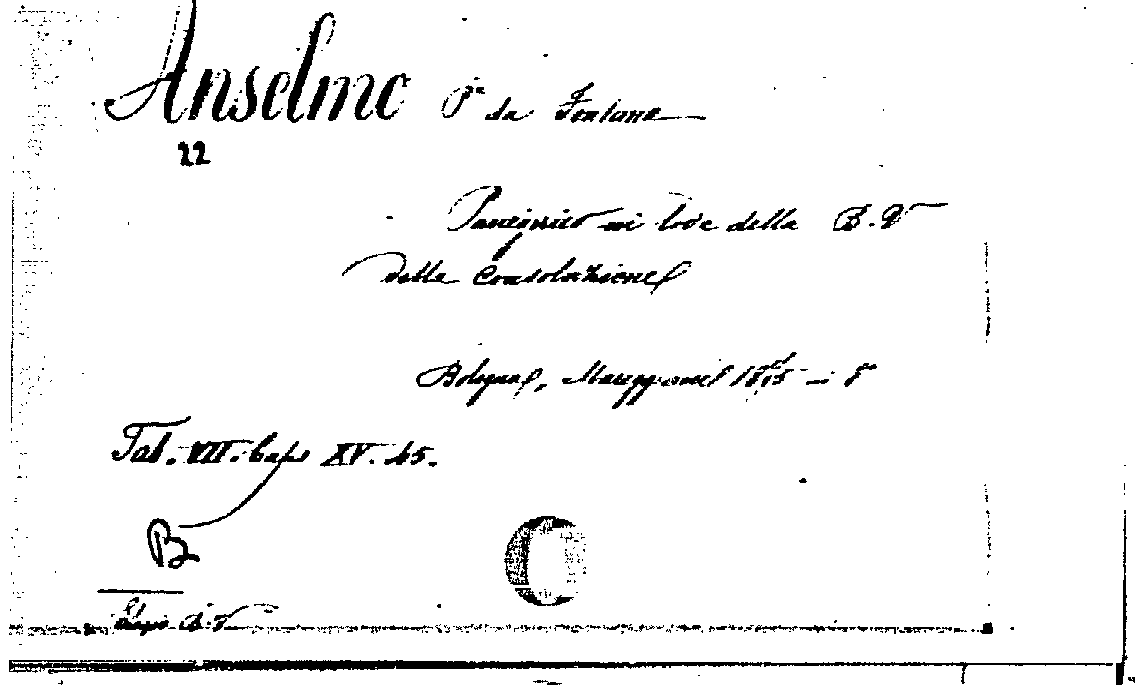 Anselmo P.e da Fontana
22
Panegirico in lode della B.V
della Consolazione
Bologna, Mareggiani in 8°
Tab. VII. Caps XV. 45.
B
Elogio B.V